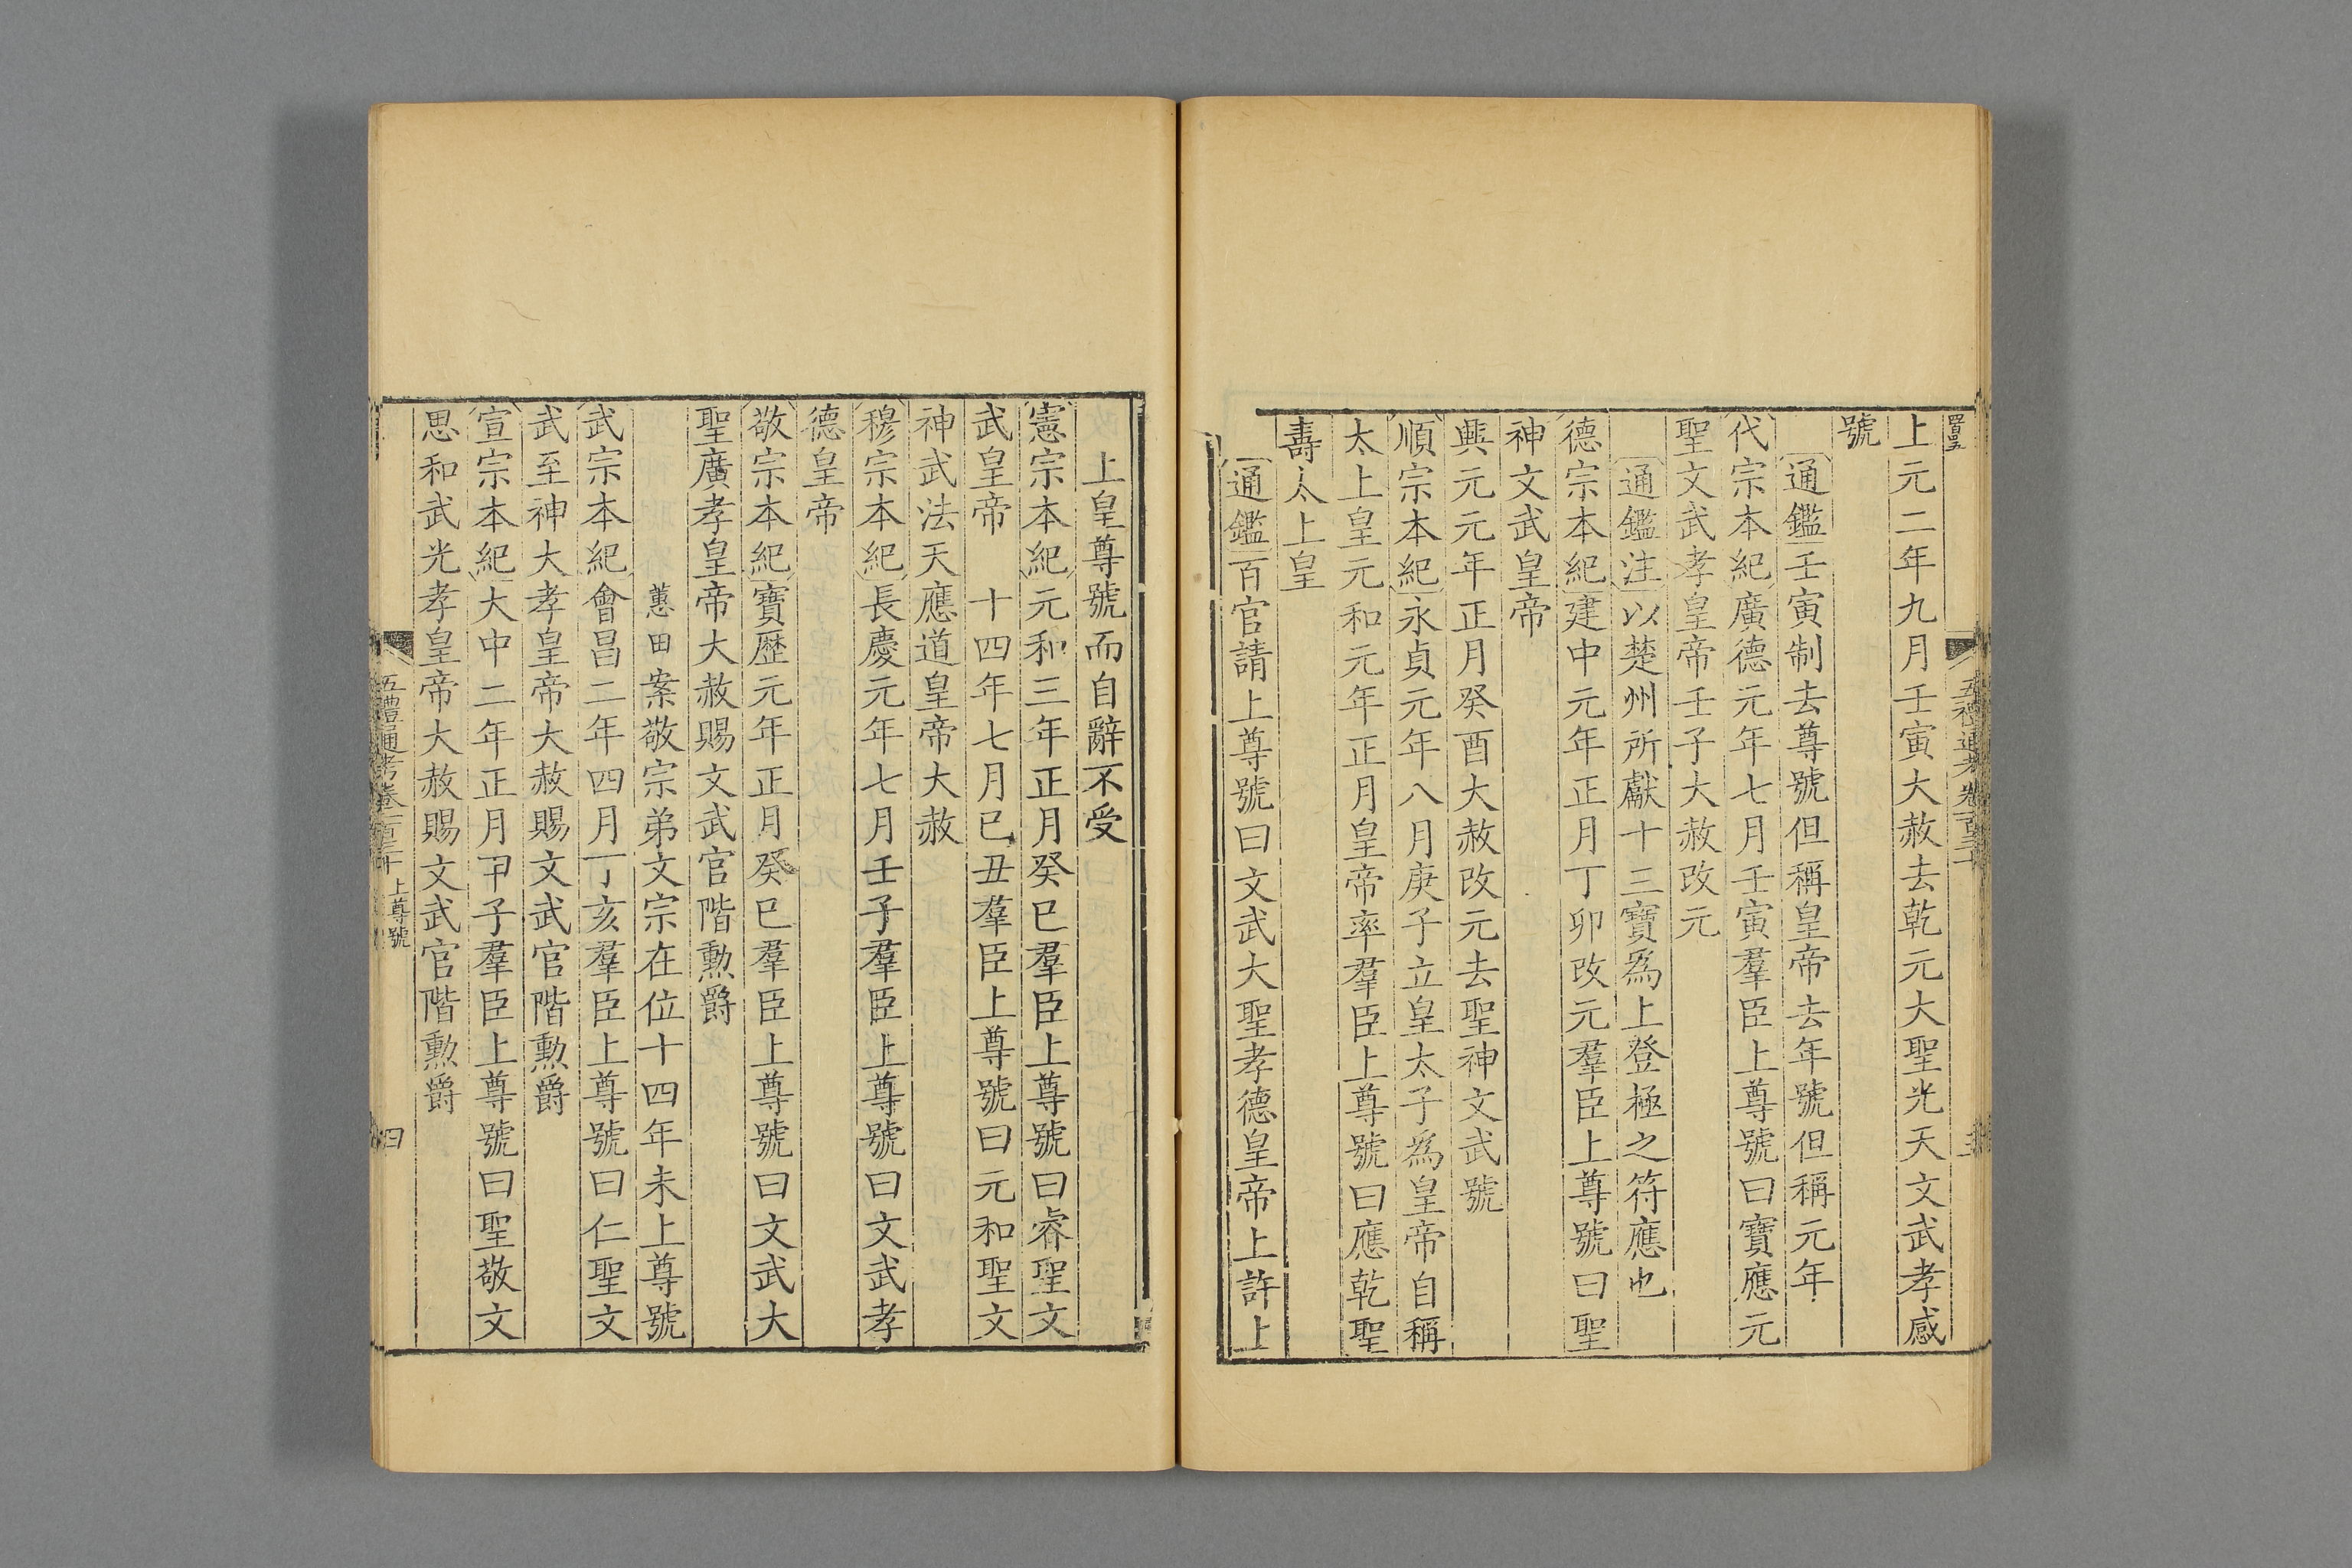 上元二年九月壬寅大赦去乾元大聖光天文武孝感
號
通鑑壬寅制去尊號但稱皇帝去年號但稱元年
代宗本紀廣德元年七月壬寅羣臣上尊號曰寶應元
聖文武孝皇帝壬子大赦改元
通鑑注以楚州所獻十三寶爲上登極之符應也
德宗本紀建中元年正月丁卯改元羣臣上尊號曰聖
神文武皇帝
興元元年正月癸酉大赦改元去聖神文武號
順宗本紀永貞元年八月庚子立皇太子爲皇帝自稱
太上皇元和元年正月皇帝率羣臣上尊號曰應乾聖
壽太上皇
通鑑百官請上尊號曰文武大聖孝德皇帝上許上
上皇尊號而自辭不受
憲宗本紀元和三年正月癸巳羣臣上尊號曰睿聖文
武皇帝　十四年七月已丑羣臣上尊號曰元和聖文
神武法天應道皇帝大赦
穆宗本紀長慶元年七月壬子羣臣上尊號曰文武孝
德皇帝
敬宗本紀寶歷元年正月癸巳羣臣上尊號曰文武大
聖廣孝皇帝大赦賜文武官階勳爵
蕙田案敬宗弟文宗在位十四年未上尊號
武宗本紀會昌二年四月丁亥羣臣上尊號曰仁聖文
武至神大孝皇帝大赦賜文武官階勳爵
宣宗本紀大中二年正月甲子羣臣上尊號曰聖敬文
思和武光孝皇帝大赦賜文武官階勳爵
五禮通考卷一百三十　上尊號
四